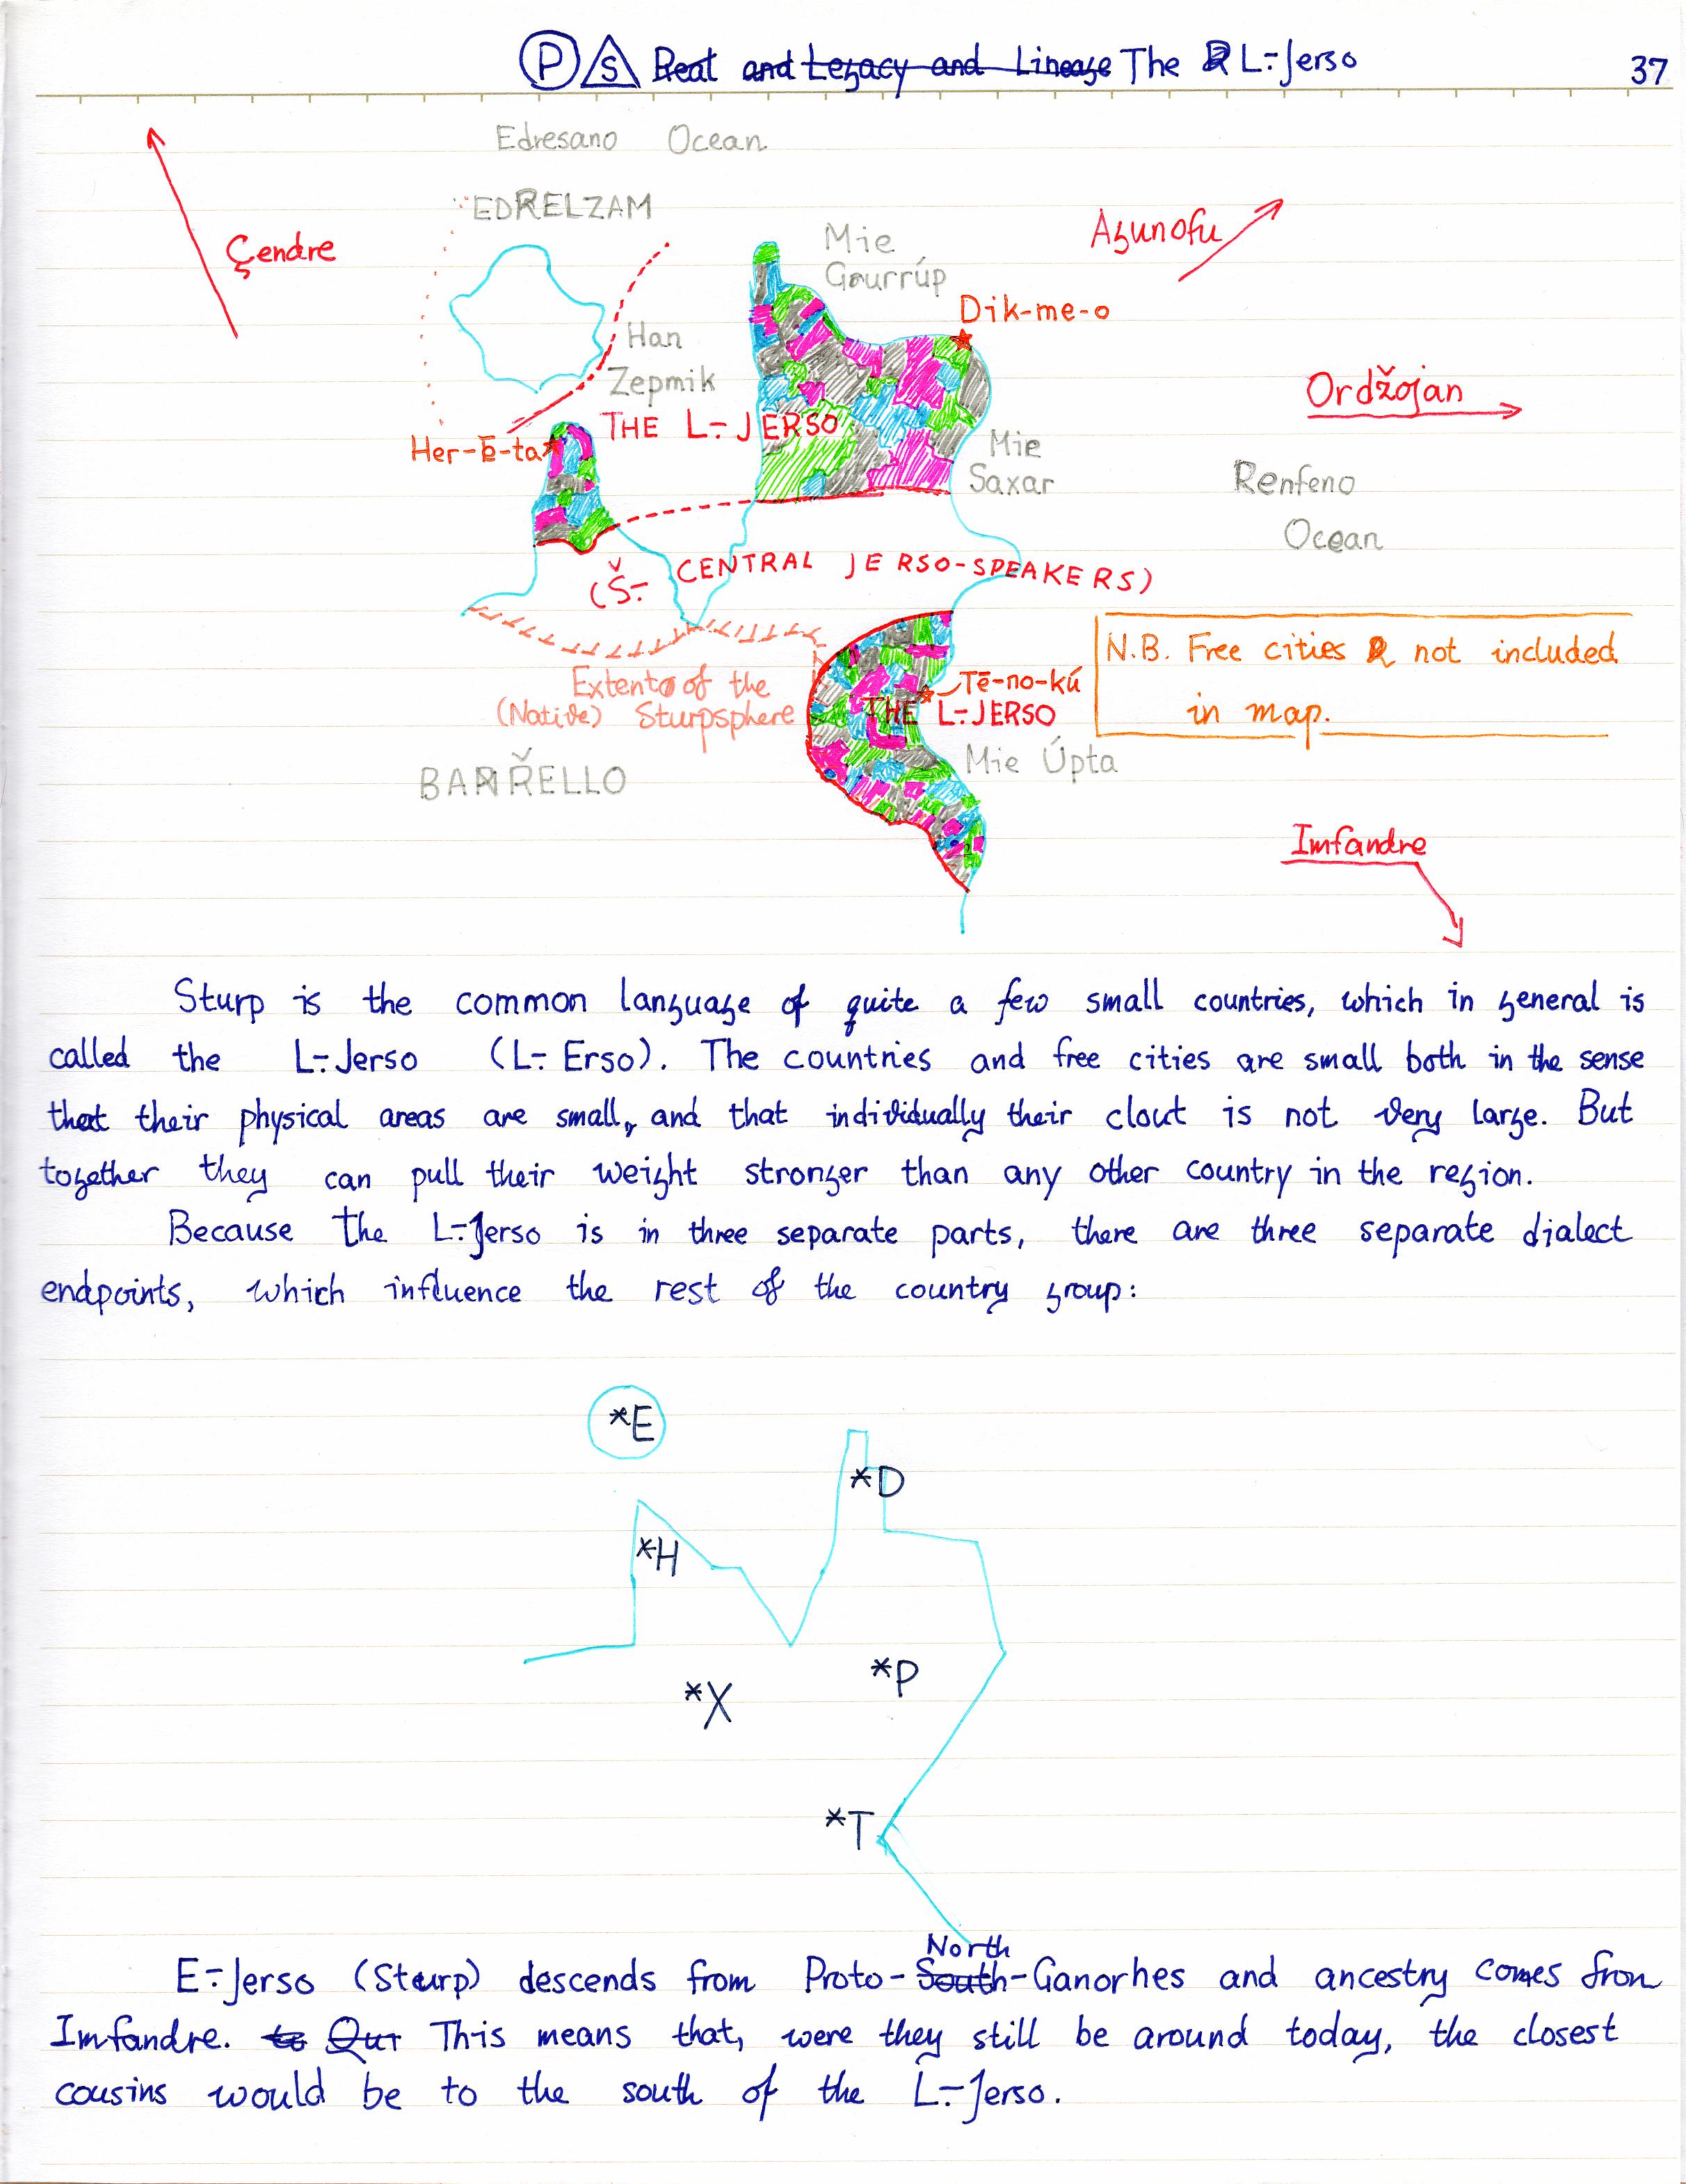 Ⓟ S Beat and Legacy and Lineage The L-̄Jerso 37
Edresano Ocean
EDRELZAM
Çendre
Mie
Gourrúp
Azunofu
Dik-me-o
Han
Zepmik
Ordžojan
THE L-̄JERSO
Her-Ē-ta
Mie
Saxar
Renfeno
Ocean
(Š-̄ CENTRAL JERSO-SPEAKERS)
N.B. Free cities not included
in map.
Extent of the
(Native) Sturpsphere
Tē-no-kú
THE L-̄JERSO
Mie Úpta
BARŘELLO
Imfandre
Sturp is the common language of quite a few small countries, which in general is
called the L-̄Jerso (L-̄Erso). The countries and free cities are small both in the sense
that their physical areas are small, and that individually their clout is not very large. But
together they can pull their weight stronger than any other country in the region.
Because the L-̄Jerso is in three separate parts, there are three separate dialect
endpoints, which influence the rest of the country group:
*E
*D
*H
*P
*X
*T
North
E-̄Jerso (Sturp) descends from Proto-South-Ganorhes and ancestry comes from
Imfandre. to Our This means that, were they still be around today, the closest
cousins would be to the south of the L-̄Jerso.